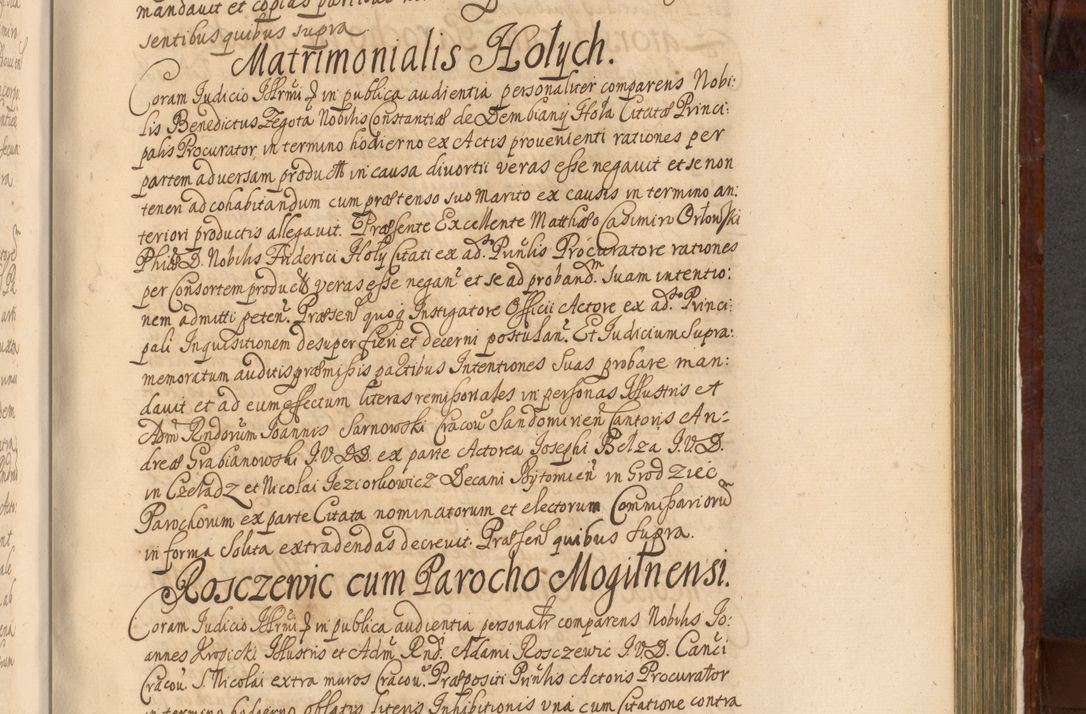 mandavit et copias partibus
sentibus quibus supra
Matrimonialis Hołych.
Coram Judicio Illrmi &c in publica audientia personaliter comparens Nobi:
lis Benedictus Zegota Nobilis Constantiæ de Dembiany Hola Citatæ Princi:
palis Procurator in termino hodierno ex Actis provenienti rationes per
partem adversam product in causa divortii veras esse negavit et se non
teneri ad cohabitandum cum prætenso suo Marito ex causis in termino an:
teriori productis allegavit. Præsente Excellente Matthæo Casimiro Orłowski
Phiæ D. Nobilis Friderici Hoły Citati ex ad.so Prinlis Procuratore rationes
per Consortem product veras esse negan et se ad proband.m suam intentio:
nem admitti peten. Præsen quoq Instigatore Officii Actore ex ad.so Princi:
pali Inquisitionem desuper fieri et decerni postulan. Et Judicium Supra:
memoratum auditis præmissis partibus Intentiones Suas probare man:
davit et ad eum effectum literas remissoriales in personas Illustris et
Adm Rndorum Joannis Sarnowski Cracou Sandomirien Cantoris An=
dreæ Grabianowski J.V.D.D. ex parte Actorea Josephi Belza J.V.D.
in Czeladz et Nicolai Jeziorkowicz Decani Bytomien in Grodziec
Parochorum ex parte Citata nominatorum et electorum Commissariorū
in forma Solita extradendas decrevit. Præsen quibus supra.
Rosczewic cum Parocho Mogilnensi.
Coram Judicio Illrmi &c in publica audientia personalr comparens Nobilis Jo:
annes Kropicki Illustris et Adm Rnd. Adami Rosczewic J.V.D. Canci
Cracou. S. Nicolai extra muros Cracou. Præpositi Prinlis Actoris Procurator
in termino hodierno oblatis literis Inhibitionis una cum Citatione contra